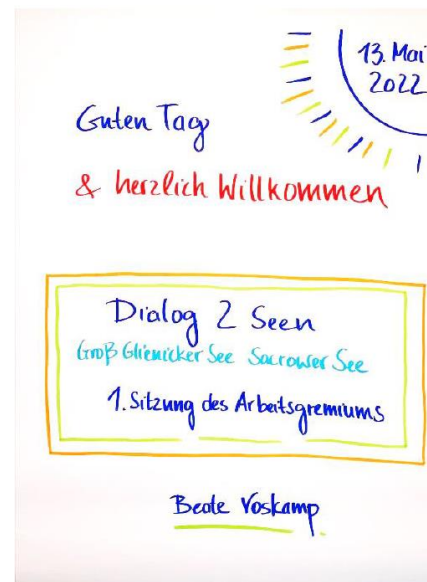 13. Mai
2022
Guten Tag
& herzlich Willkommen
Dialog 2 Seen
Groß Glienicker See Sacrower See
1. Sitzung des Arbeitsgremiums
Beate Voskamp